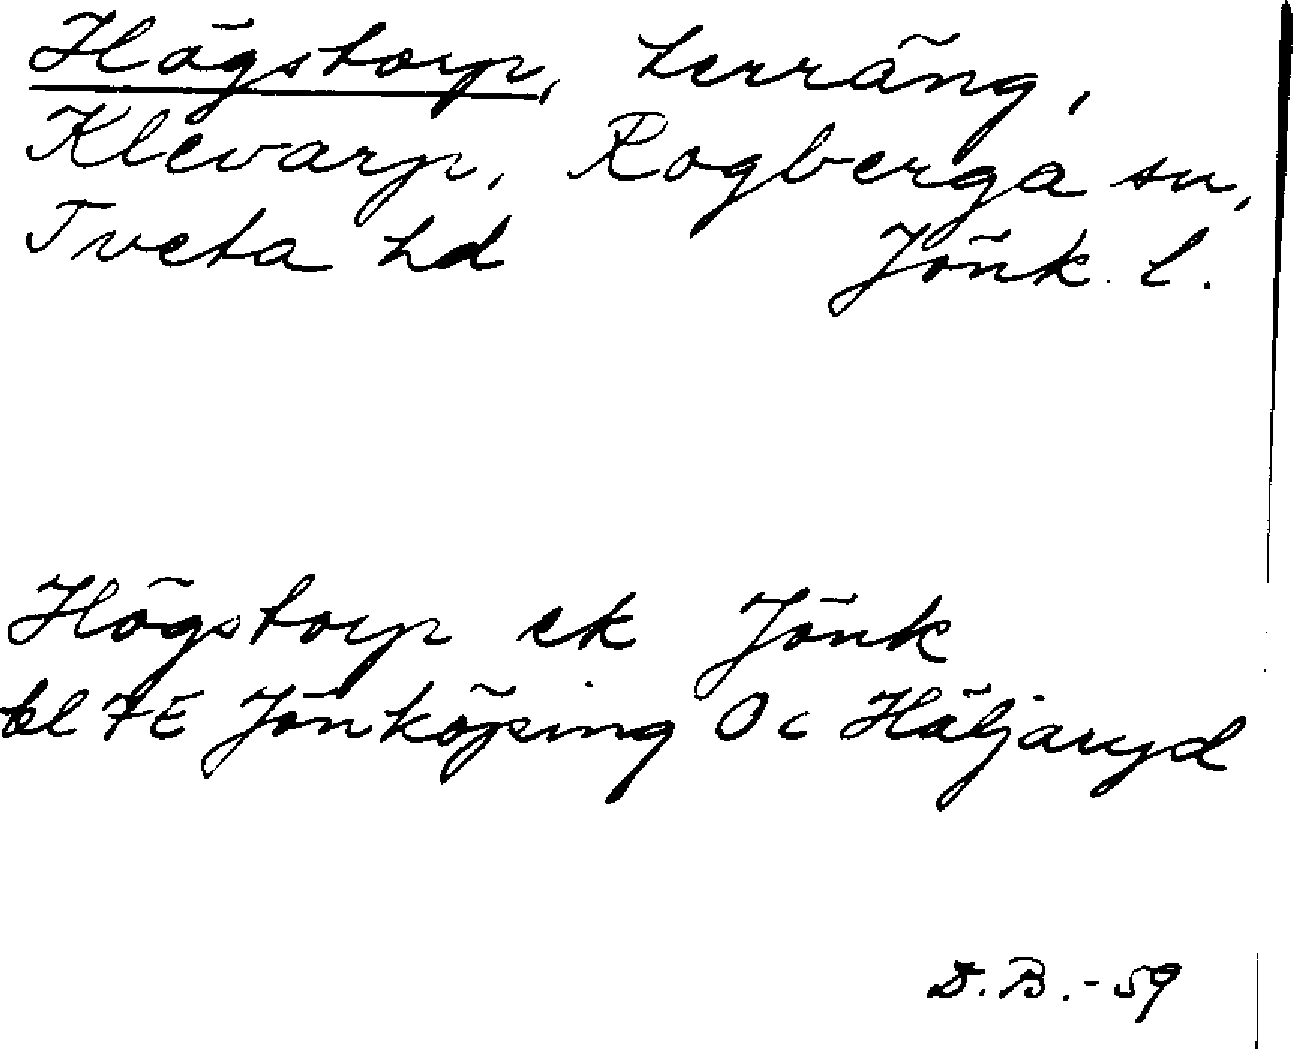 Högstorp, terräng,
Klevarp, Rogberga sn,
Tveta hd Jönk. l.
Högstorp ek Jönk
bl 7E Jönköping 0c Häljaryd
D.B.-59